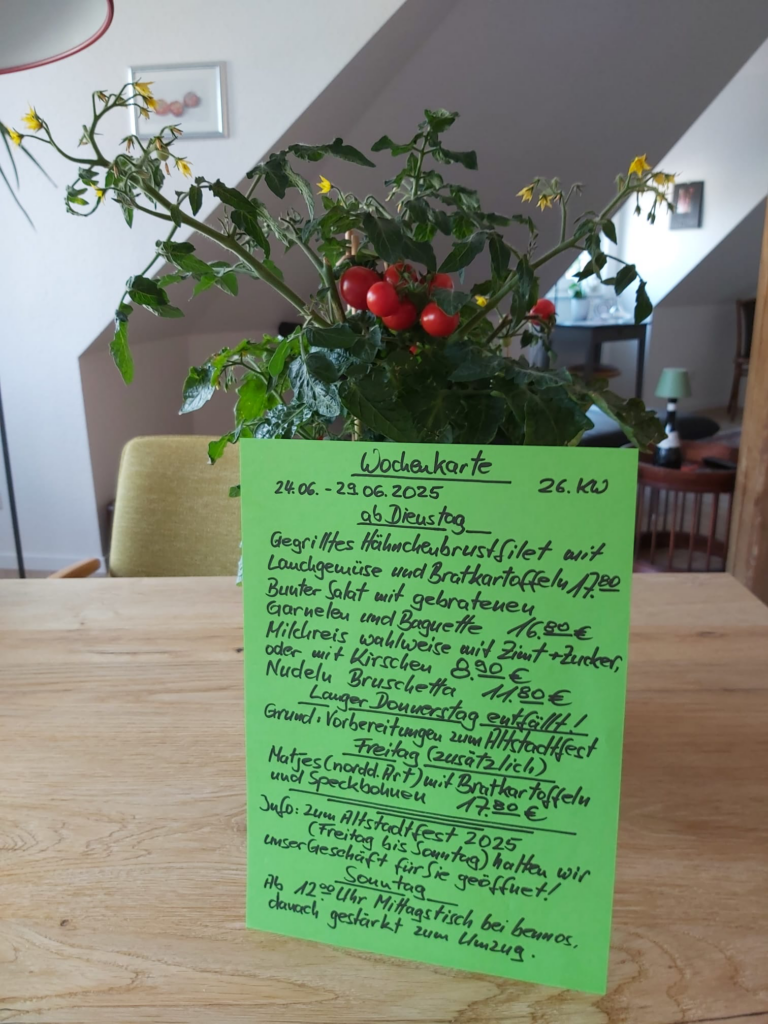 Wochenkarte
24.06. - 29.06.2025 26. KW
ab Dienstag
Gegrilltes Hähnchenbrustfilet mit
Lauchgemüse und Bratkartoffeln 17.80
Bunter Salat mit gebratenen
Garnelen und Baguette 16.80 €
Milchreis wahlweise mit Zimt + Zucker,
oder mit Kirschen 8.90 €
Nudeln Bruschetta 11.80 €
Langer Donnerstag entfällt!
Grund: Vorbereitungen zum Altstadtfest
Freitag (zusätzlich)
Matjes (nordd. Art) mit Bratkartoffeln
und Speckbohnen 17.80 €
Info: zum Altstadtfest 2025
(Freitag bis Sonntag) halten wir
unser Geschäft für Sie geöffnet!
Sonntag
Ab 12.00 Uhr Mittagstisch bei bennos,
danach gestärkt zum Umzug.